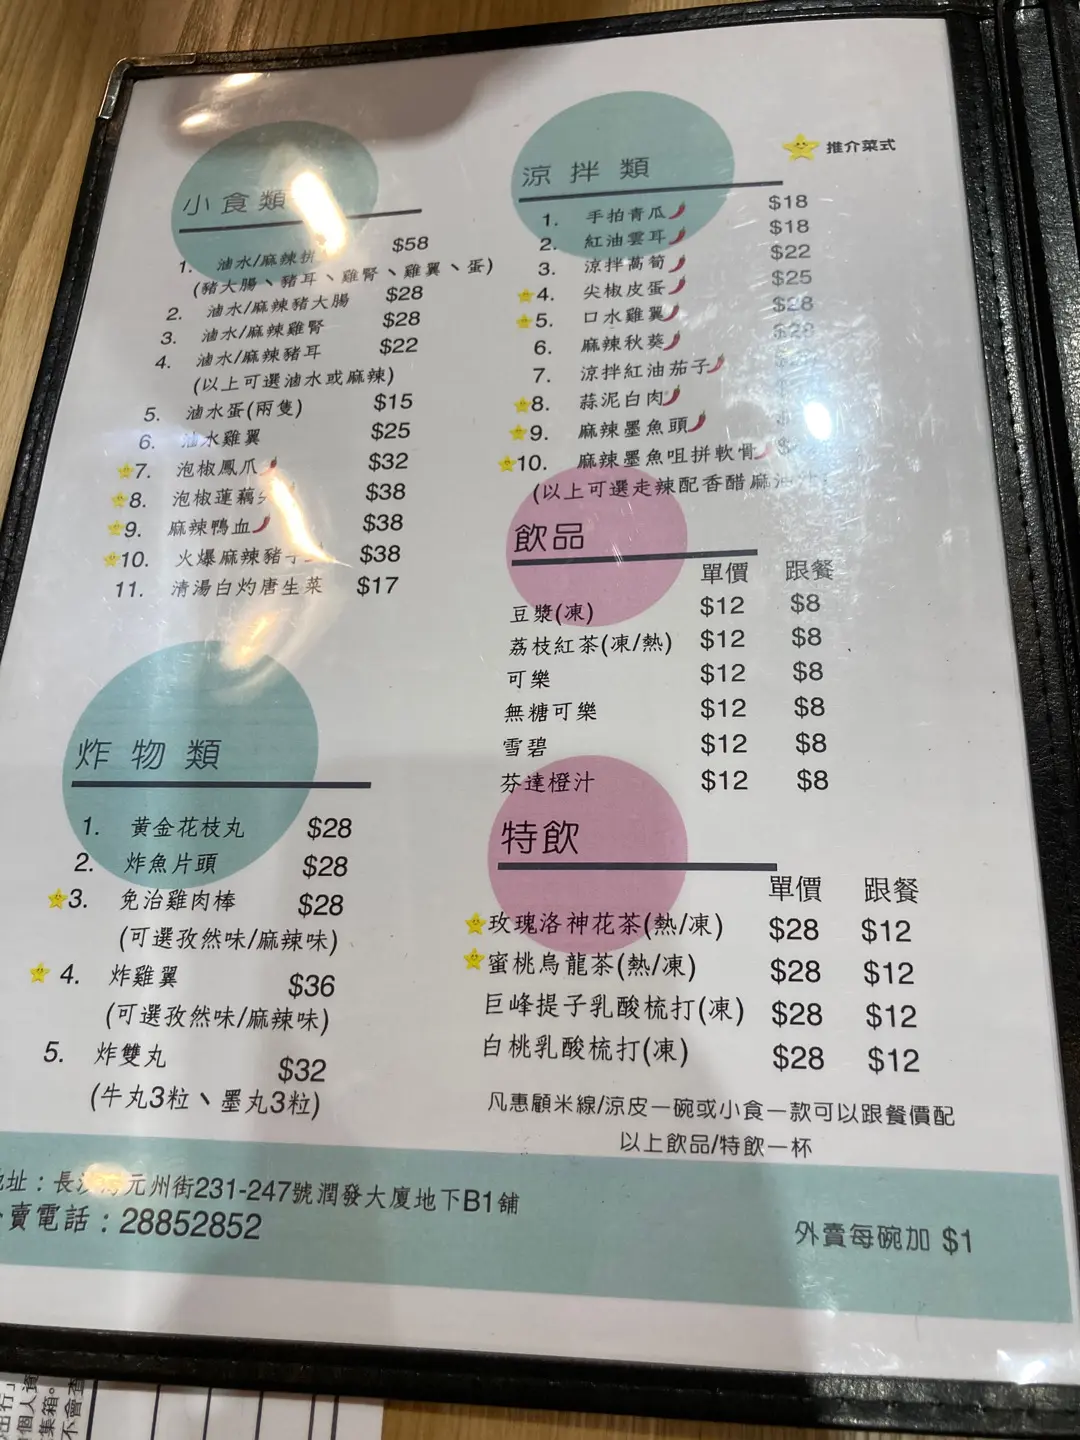 小食類
1. 滷水/麻辣拼 $58
(豬大腸、豬耳、雞腎、雞翼、蛋)
2. 滷水/麻辣豬大腸 $28
3. 滷水/麻辣雞腎 $28
4. 滷水/麻辣豬耳 $22
(以上可選滷水或麻辣)
5. 滷水蛋(兩隻) $15
6. 滷水雞翼 $25
7. 泡椒鳳爪 $32
8. 泡椒蓮藕 $38
9. 麻辣鴨血 $38
10. 火爆麻辣豬 $38
11. 清湯白灼唐生菜 $17
炸物類
1. 黃金花枝丸 $28
2. 炸魚片頭 $28
3. 免治雞肉棒 $28
(可選孜然味/麻辣味)
4. 炸雞翼 $36
(可選孜然味/麻辣味)
5. 炸雙丸 $32
(牛丸3粒、墨丸3粒)
推介菜式
涼拌類
1. 手拍青瓜 $18
2. 紅油雲耳 $18
3. 涼拌萵筍 $22
4. 尖椒皮蛋 $25
5. 口水雞翼 $28
6. 麻辣秋葵 $28
7. 涼拌紅油茄子
8. 蒜泥白肉
9. 麻辣墨魚頭
10. 麻辣墨魚咀拼軟骨
(以上可選走辣配香醋麻油
飲品
單價 跟餐
豆漿(凍) $12 $8
荔枝紅茶(凍/熱) $12 $8
可樂 $12 $8
無糖可樂 $12 $8
雪碧 $12 $8
芬達橙汁 $12 $8
特飲
單價 跟餐
玫瑰洛神花茶(熱/凍) $28 $12
蜜桃烏龍茶(熱/凍) $28 $12
巨峰提子乳酸梳打(凍) $28 $12
白桃乳酸梳打(凍) $28 $12
凡惠顧米線/涼皮一碗或小食一款可以跟餐價配
以上飲品/特飲一杯
址：長沙灣元州街231-247號潤發大廈地下B1舖
賣電話：28852852
外賣每碗加 $1